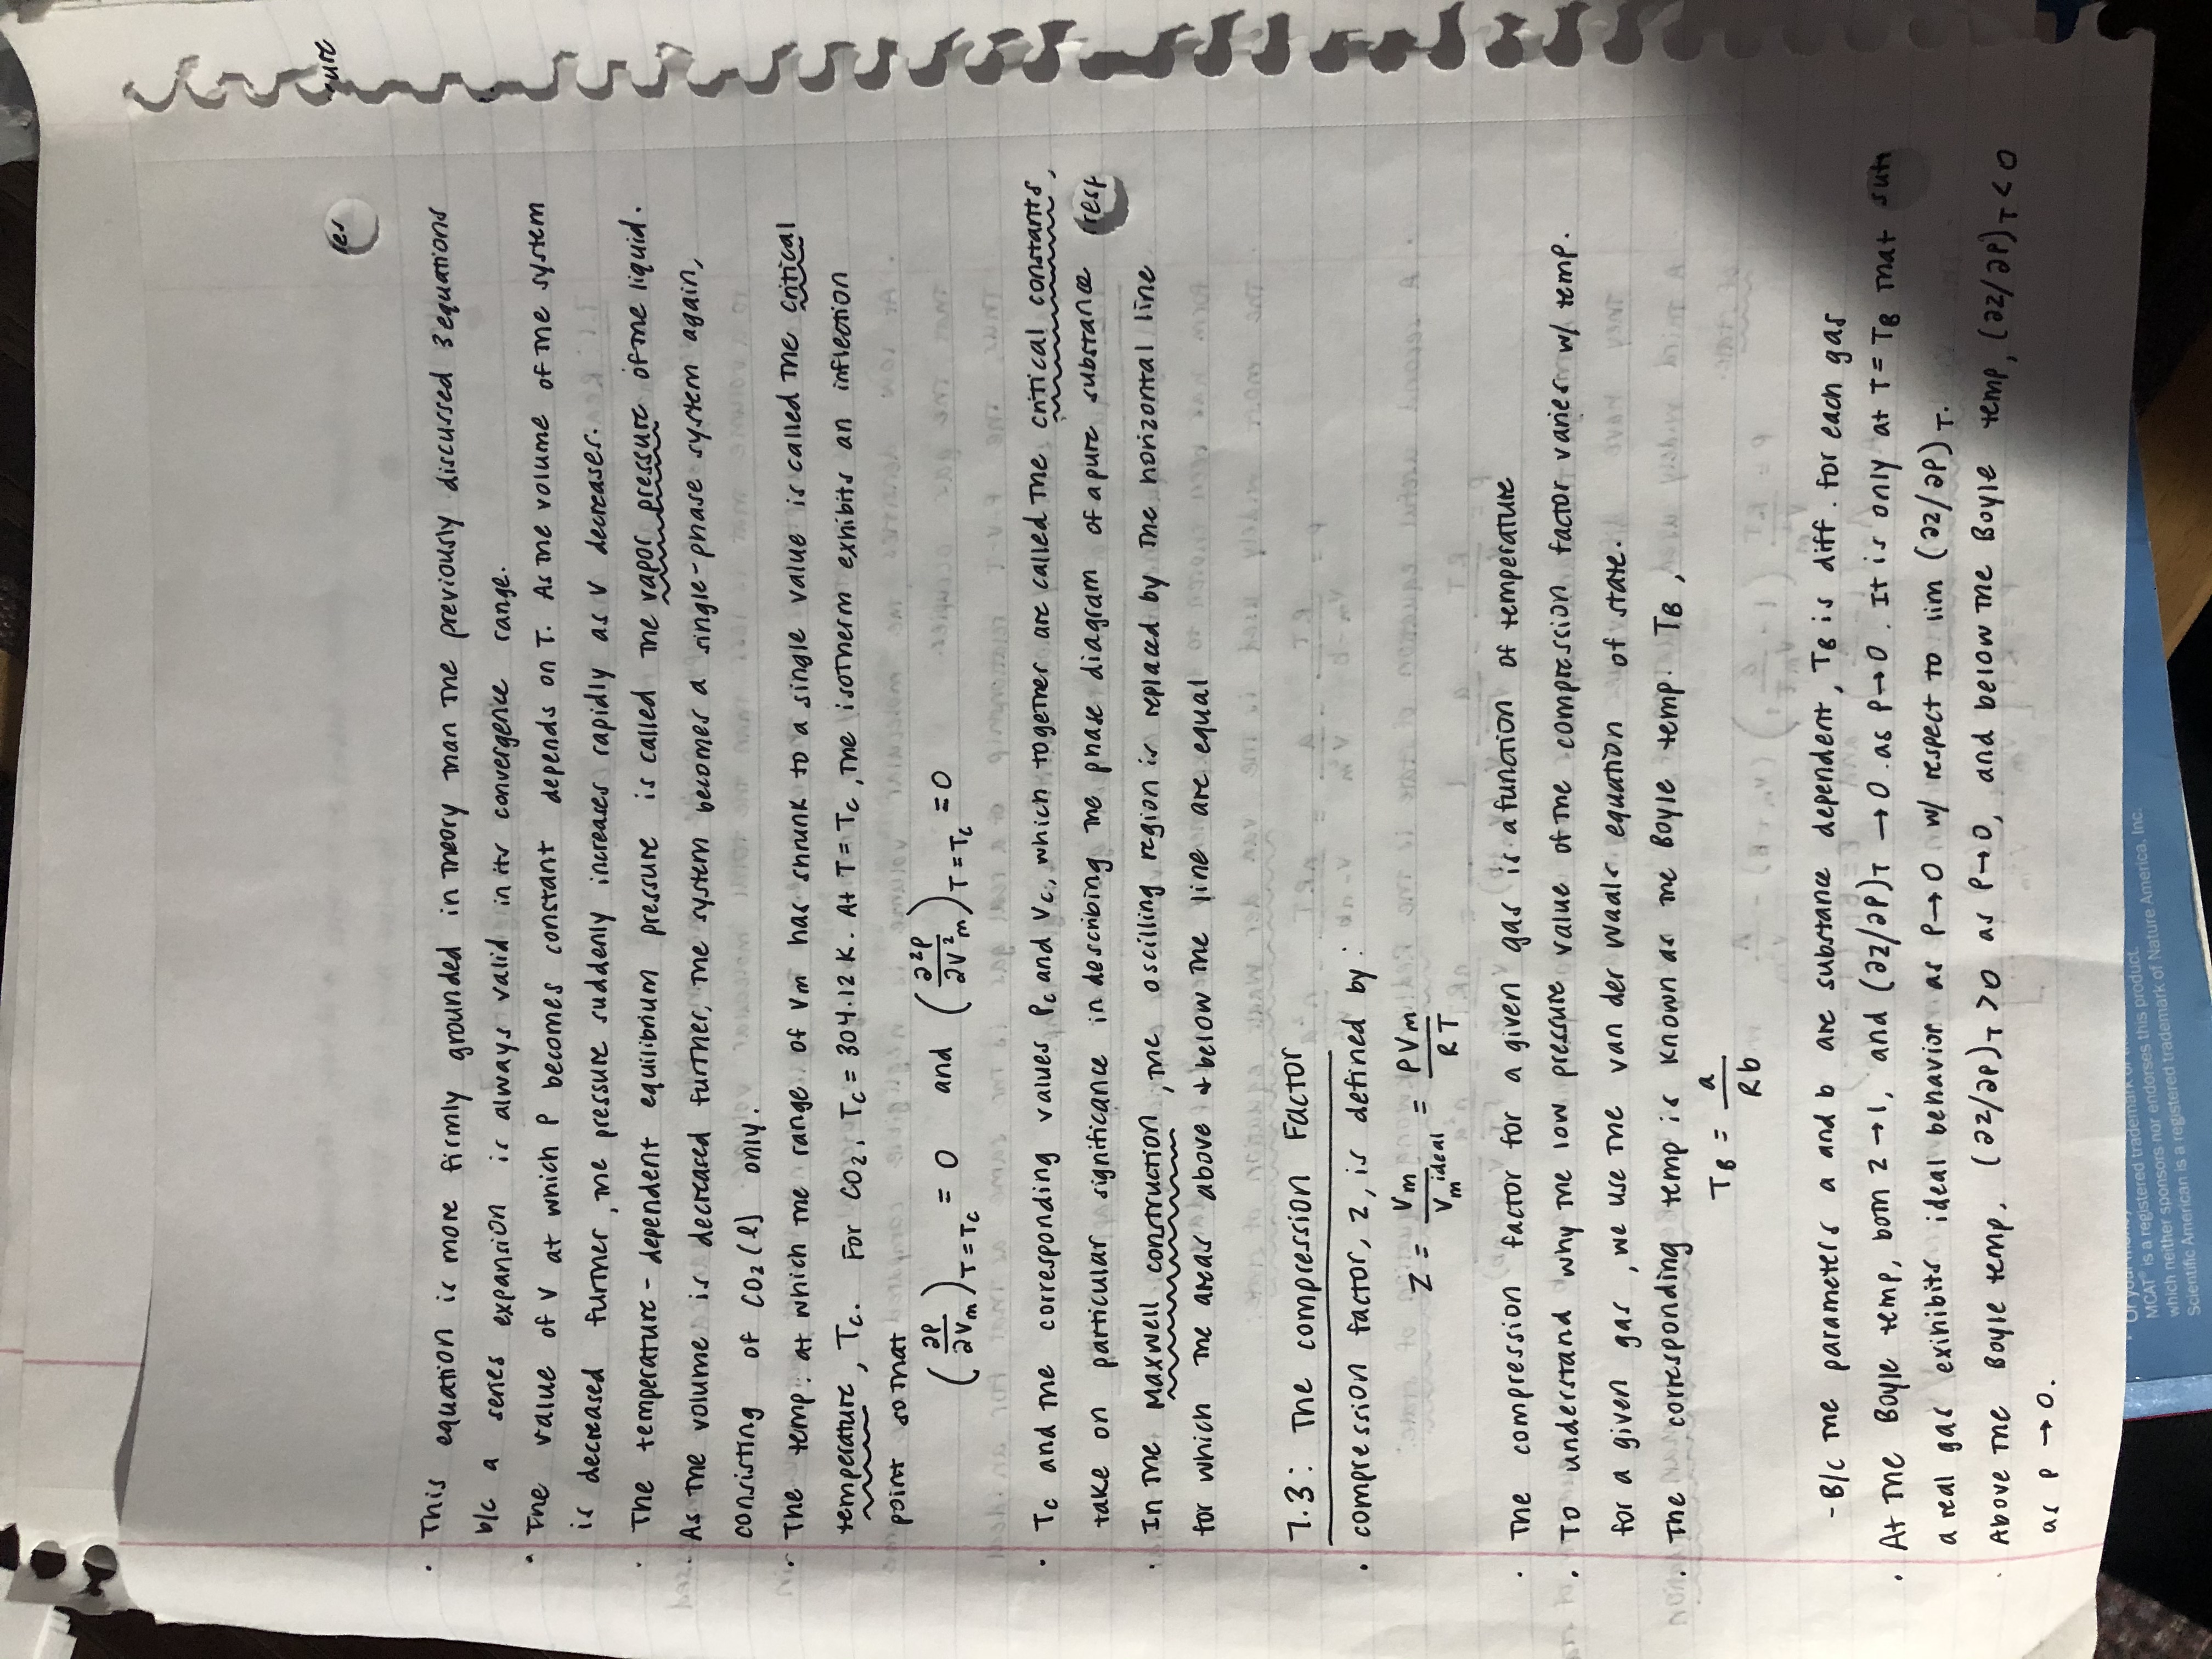 es
ure
· This equation is more firmly grounded in theory than the previously discussed 3 equations
b/c a series expansion is always valid in its convergence range.
· The value of V at which P becomes constant depends on T. As the volume of the system
is decreased further, the pressure suddenly increases rapidly as V decreases.
· The temperature-dependent equilibrium pressure is called the vapor pressure of the liquid.
· As the volume is decreased further, the system becomes a single-phase system again,
consisting of CO₂(l) only.
· The temp. at which the range of Vm has shrunk to a single value is called the critical
temperature, Tc. For CO₂, Tc = 304.12 K. At T = Tc, the isotherm exhibits an inflection
point so that
(∂P/∂Vm)T=Tc = 0 and (∂²P/∂V²m)T=Tc = 0
· Tc and the corresponding values Pc and Vc, which together are called the critical constants,
take on particular significance in describing the phase diagram of a pure substance
· In the Maxwell construction, the oscilling region is replaced by the horizontal line
for which the areas above + below the line are equal
7.3: The compression Factor
· compression factor, z, is defined by:
Z = Vm/Vm^ideal = PVm/RT
· The compression factor for a given gas is a function of temperature
· To understand why the low pressure value of the compression factor varies w/ temp.
for a given gas, we use the van der Waals equation of state.
· The corresponding temp is known as the Boyle temp. TB,
TB = a/Rb
- B/c the parameters a and b are substance dependent, TB is diff. for each gas
· At the Boyle temp, both z → 1, and (∂z/∂P)T → 0 as P → 0. It is only at T = TB that
a real gas exihibits ideal behavior as P → 0 w/ respect to lim (∂z/∂P)T.
· Above the Boyle temp, (∂z/∂P)T > 0 as P → 0, and below the Boyle temp, (∂z/∂P)T < 0
as P → 0.
MCAT® is a registered trademark of
which neither sponsors nor endorses this product.
Scientific American is a registered trademark of Nature America, Inc.